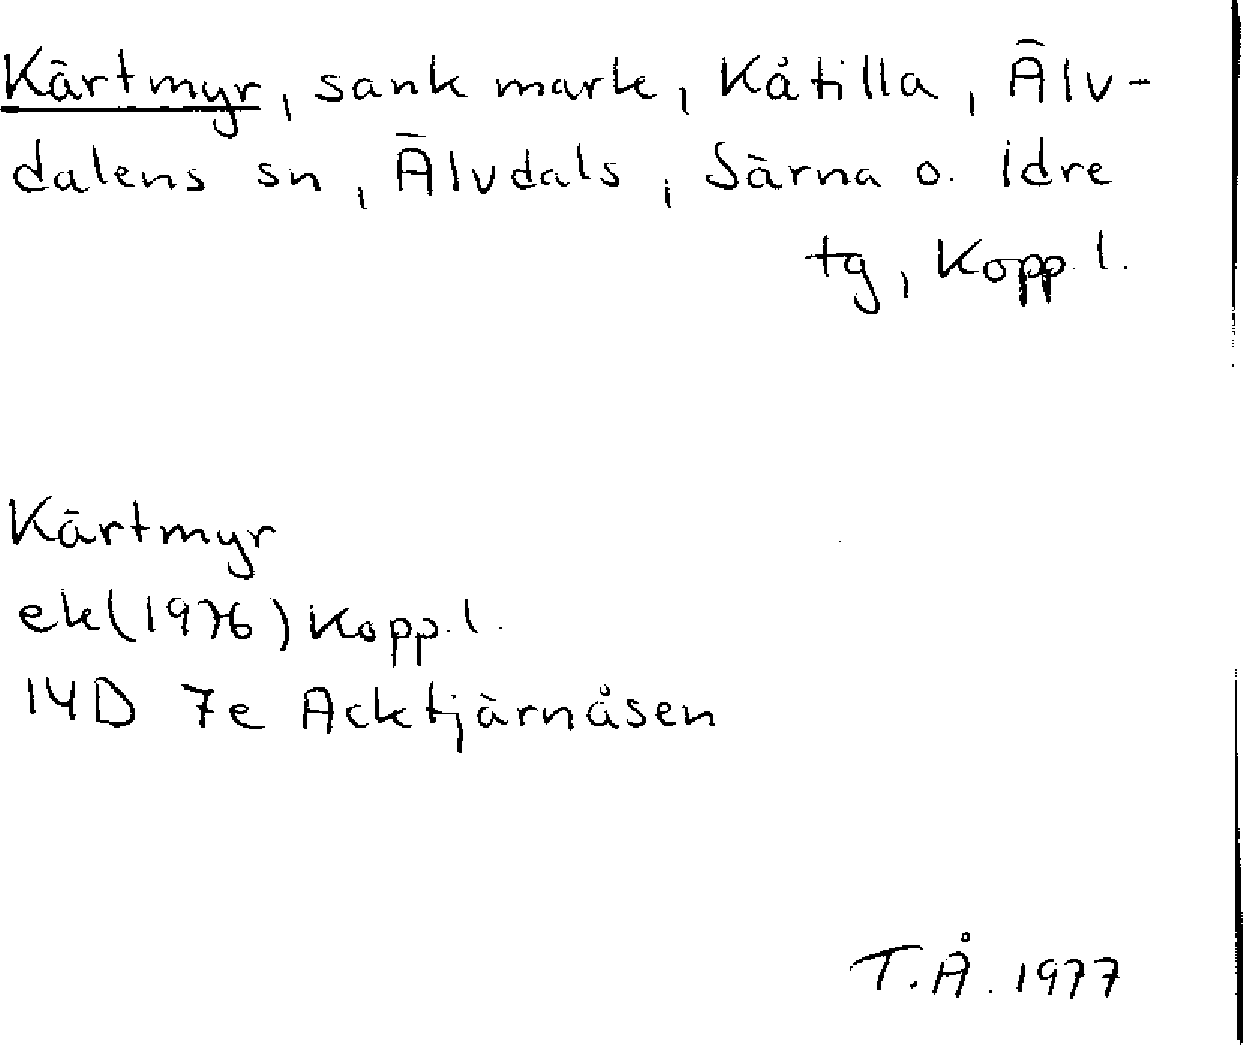 Kärtmyr, sank mark, Kåtilla, Älv-
dalens sn, Älvdals, Särna o. Idre
tg, Kopp. l.
Kärtmyr
ek(1976) Kopp. l.
14D 7e Acktjärnåsen
T.Å. 1977